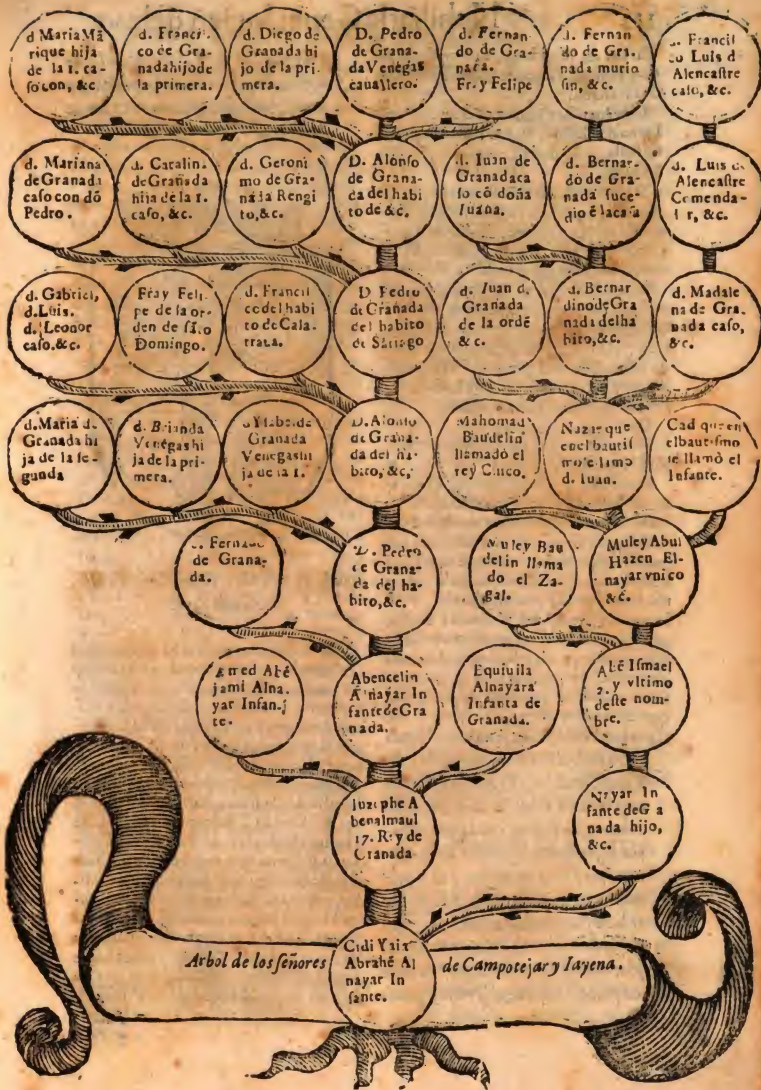 d Maria Mã
rique hija
de la 1. ca-
so con, &c
d. Franci-
co de Gra-
nada hijo de
la primera.
d. Diego de
Granada hi
jo de la pri-
mera.
D. Pedro
de Grana-
da Venegas
cauallero.
d. Fernan
do de Gra-
nada.
Fr. y Felipe
d. Fernan
do de Gra.
nada murio
sin, &c.
d. Francis
co Luis d
Alencastre
caso, &c.
d. Mariana
de Granada
caso con dõ
Pedro.
d. Catalina
de Granada
hija de la 1.
caso, &c.
d. Geroni
mo de Gra-
nada Rengi
to, &c.
D. Alõnso
de Grana-
da del habi
to de &c.
d. Iuan de
Granada ca
so cõ doña
Iuana.
d. Bernar-
do de Gra-
nada suce-
dio ẽ la casa
d. Luis de
Alencastre
Comenda-
r, &c.
d. Gabriel,
d. Luis.
d. Leonor
caso. &c.
Fray Feli-
pe de la or-
den de sãto
Domingo.
d. Francis
co del habi
to de Cala-
traua.
D Pedro
de Granada
del habito
de Sãtiago
d. Iuan d.
Granada
de la ordẽ
&c.
d. Bernar
dino de Gra
nada del ha
bito, &c.
d. Madale
na de Gra.
nada caso,
&c.
d. Maria de
Granada hi
ja de la se-
gunda
d. Brianda
Venegas hi
ja de la pri-
mera.
d Ysabel de
Granada
Venegas hi
ja de la 1.
D. Alonso
de Grana-
da del ha-
bito, &c,
Mahomad
Baudelin
llamado el
rey Chico.
Nazar que
en el bautis
mo se llamo
d. Iuan.
Cad que en
el bautismo
se llamò el
Infante.
d. Fernando
de Grana-
da.
D. Pedro
de Grana-
da del ha-
bito, &c.
Muley Bau
delin llama
do el Za-
gal.
Muley Abul
Hazen El-
nayar vnico
&c.
Amed Abẽ
jami Alna.
yar Infan.
te.
Abencelin
Alnayar In
fante de Gra
nada.
Equiuila
Alnayara
Infanta de
Granada.
Abẽ Ismael
y vltimo
deste nom-
bre.
Iuzephe A
benalmaul
17. Rey de
Granada
Nayar In
fante de G a
nada hijo,
&c.
Arbol de los señores
Cidi Yaia
Abrahẽ Al
nayar In
fante.
de Campotejar y Iayena.